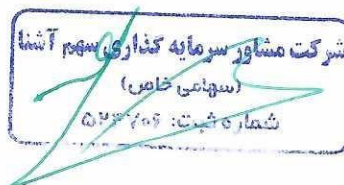 شرکت مشاور سرمایه گذاری سهم آشنا
(سهامی خاص)
شماره ثبت: